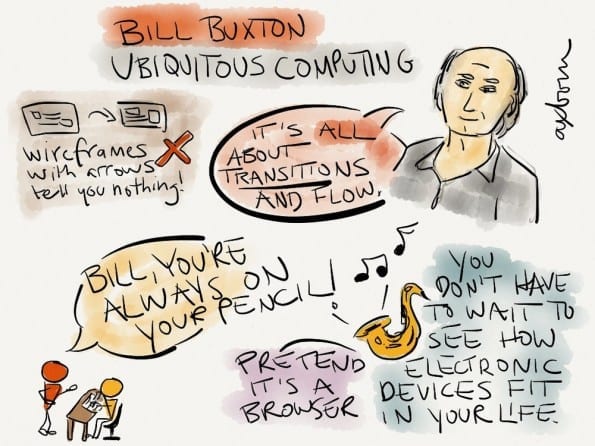 BILL BUXTON
UBIQUITOUS COMPUTING
axbom
wireframes
with arrows
tell you nothing!
IT'S ALL
ABOUT
TRANSITIONS
AND FLOW.
BILL, YOU'RE
ALWAYS ON
YOUR PENCIL!
PRETEND
IT'S A
BROWSER
YOU
DON'T HAVE
TO WAIT TO
SEE HOW
ELECTRONIC
DEVICES FIT
IN YOUR LIFE.